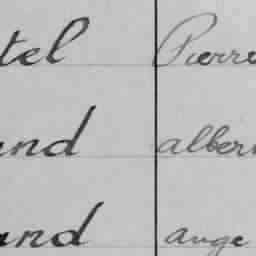 tel Pierre
and alber
and ange